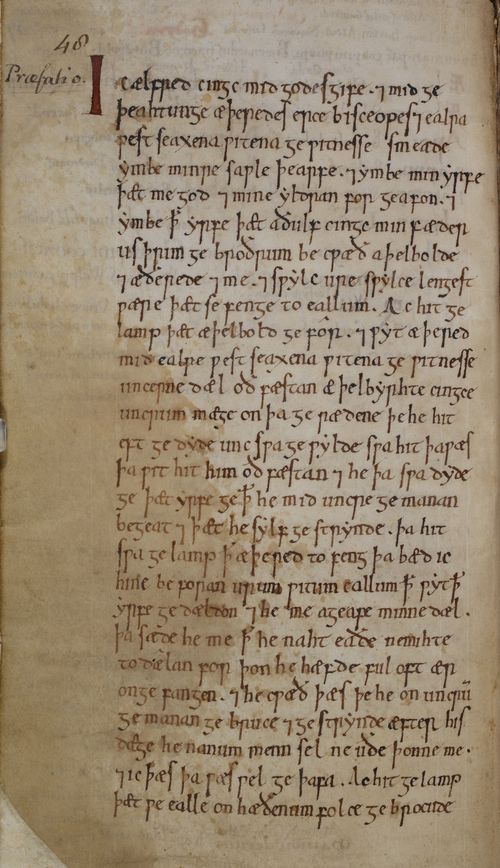 48
Præfatio.
Ic ælfred cingc mid godes gife. ⁊ mid ge
þeahtunge æþeredes erce bisceopes ⁊ ealra
ƿest seaxena ƿitena geƿitnesse smeade
ymbe minre saƿle þearfe. ⁊ ymbe min yrfe
þæt me god ⁊ mine yldran forgeafon. ⁊
ymbe þ̄ yrfe þæt aðulf cingc min fæder
us þrim gebroðrum becƿæð aþelbolde
⁊ æðerede ⁊ me. ⁊ sƿylc ure sƿylce lengest
ƿære þæt se fenge to eallum. Ac hit ge
lamp þæt æþelbold gefor. ⁊ ƿyt æþered
mid ealre ƿest seaxena ƿitena geƿitnesse
uncerne dæl oð fæstan æþelbyrhte cingce
uncrum mæge on þa gerædene þe he hit
eft gedyde unc sƿa geƿylde sƿa hit þa ƿæs
þa ƿit hit him oð fæstan ⁊ he þa sƿa dyde
ge þæt yrfe ge þ̄ he mid uncre gemanan
begeat ⁊ þæt he sylf gestrynde. þa hit
sƿa gelamp þ̄ æþered to feng þa bæd ic
hine beforan urum ƿitum eallum þ̄ ƿyt þ̄
yrfe gedældon ⁊ he me ageafe minne dæl.
þa sæde he me þ̄ he naht eaðe ne mihte
todælan for þon he hæfde ful oft ær
ongefangen. ⁊ he cƿæð þæs þe he on uncrū
gemanan gebruce ⁊ gestrynde æfter his
dæge he nanum menn sel ne uðe þonne me.
⁊ ic þæs þa ƿæs ƿel geþafa. Ac hit gelamp
þæt ƿe ealle on hæðenum folce gebrocude